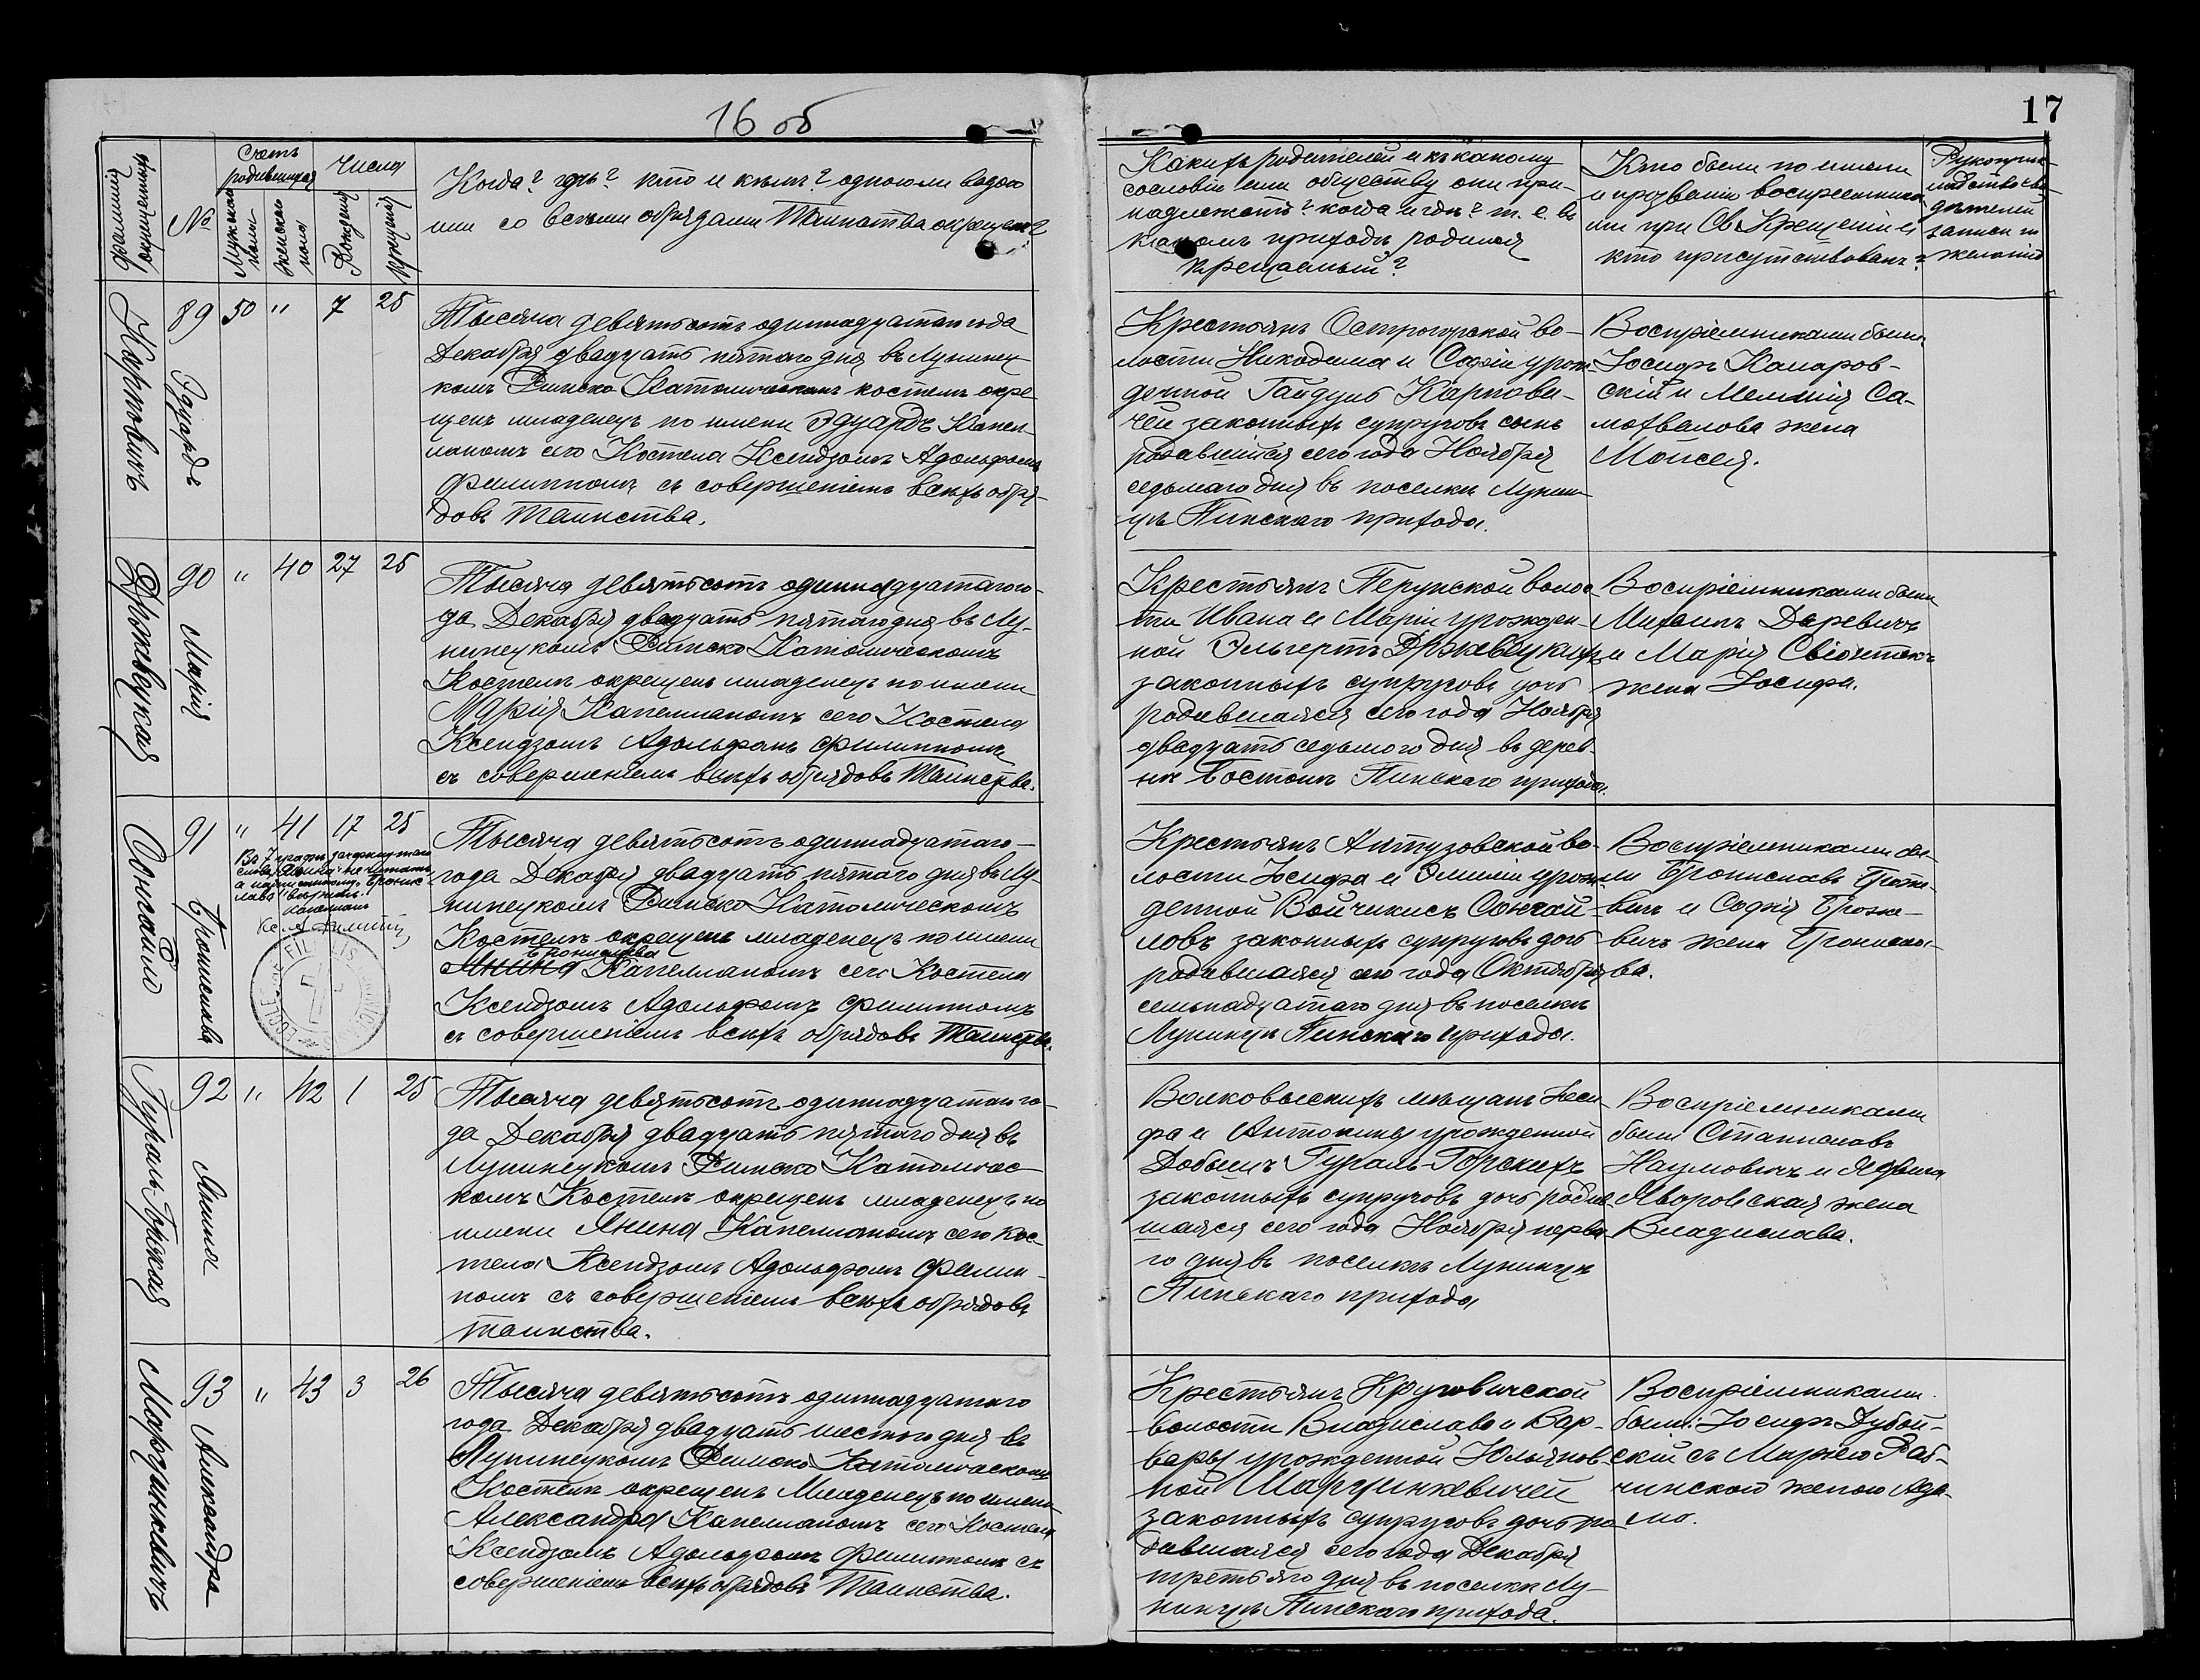 16 об
17
Счетъ родившихся
Числа
№
Мужскаго пола
Женскаго пола
Рожденія
Крещенія
Когда? гдѣ? кто и кѣмъ? одною ли водою
или со всѣми обрядами Таинства окрещенъ?
Какихъ родителей и къ какому
сословію или обществу они при-
надлежатъ? когда и гдѣ? т. е. въ
какомъ приходѣ родился
крещаемый?
Кто были по имени
и прозванію воспріемника-
ми при Св. Крещеніи и
кто присутствовалъ?
Рукоприк-
ладство сви-
дѣтелей
записи по
желанію
Карповичъ
89
Эдуардъ
50 " 7 25
Тысяча девятьсотъ одиннадцатаго года
Декабря двадцать пятаго дня въ Лунинец-
комъ Римско Католическомъ костелѣ окре-
щенъ младенецъ по имени Эдуардъ Капел-
ланомъ сего Костела Ксендзомъ Адольфомъ
Филиппомъ съ совершеніемъ всѣхъ обря-
довъ Таинства.
Крестьянъ
лости Никодима и Софіи урож-
денной Гайдуль Карпови-
чей законныхъ супруговъ сынъ
родившійся сего года Ноября
седьмаго дня въ поселкѣ Лунин-
цѣ Пинскаго прихода.
Воспріемниками были
Іосифъ Комаров-
скій и Меланія Са-
мохвалова жена
Моисея.
Држевуцкая
90
Марія
" 40 27 25
Тысяча девятьсотъ одиннадцатаго го-
да Декабря двадцать пятаго дня въ Лу-
нинецкомъ Римско Католическомъ
Костелѣ окрещенъ младенецъ по имени
Марія Капелланомъ сего Костела
Ксендзомъ Адольфомъ Филиппомъ
съ совершеніемъ всѣхъ обрядовъ Таинства.
Крестьянъ волос-
ти Ивана и Маріи урожден-
ной Эльгертъ Држевуцкихъ
законныхъ супруговъ дочь
родившаяся сего года Ноября
двадцать седьмаго дня въ дерев-
нѣ Бостынь Пинскаго прихода.
Воспріемниками были
Михаилъ Даревичъ
и Марія
жена Іосифа.
Сонгайло
91
Бронислава
" 41 17 25
Въ 7 графѣ зачеркнутаго
слова "Янина" не читать,
а надписанному "Бронис-
лава" вѣрить.
Капелланъ
Кс. А. Филиппъ
Тысяча девятьсотъ одиннадцатаго
года Декабря двадцать пятаго дня въ Лу-
нинецкомъ Римско Католическомъ
Костелѣ окрещенъ младенецъ по имени
Бронислава
Янина Капелланомъ сего Костела
Ксендзомъ Адольфомъ Филиппомъ
съ совершеніемъ всѣхъ обрядовъ Таинства.
Крестьянъ Антузовской во-
лости Іосифа и Эмиліи урож-
денной Войчикисъ Сонгай-
ловъ законныхъ супруговъ дочь
родившаяся сего года Октября
семьнадцатаго дня въ поселкѣ
Лунинцѣ Пинскаго прихода.
Воспріемниками бы-
ли Брониславъ
и Софія
жена Бронисла-
ва.
Гураль-Горская
92
Янина
" 42 1 25
Тысяча девятьсотъ одиннадцатаго го-
да Декабря двадцать пятаго дня въ
Лунинецкомъ Римско Католичес-
комъ Костелѣ окрещенъ младенецъ по
имени Янина Капелланомъ сего Кос-
тела Ксендзомъ Адольфомъ Филип-
помъ съ совершеніемъ всѣхъ обрядовъ
Таинства.
Волковыскихъ мѣщанъ Іоси-
фа и Антонины урожденной
Добышъ Гураль-Горскихъ
законныхъ супруговъ дочь родив-
шаяся сего года Ноября перва-
го дня въ поселкѣ Лунинцѣ
Пинскаго прихода
Воспріемниками
были Станиславъ
Наумовичъ и Ядвига
Яворовская жена
Владислава.
Марцинкевичъ
93
Александра
" 43 3 26
Тысяча девятьсотъ одиннадцатаго
года Декабря двадцать шестого дня въ
Лунинецкомъ Римско Католическомъ
Костелѣ окрещенъ Младенецъ по имени
Александра Капелланомъ сего Костела
Ксендзомъ Адольфомъ Филиппомъ съ
совершеніемъ всѣхъ обрядовъ Таинства.
Крестьянъ Круговичской
волости Владислава и Вар-
вары урожденной Юльянов-
ной Марцинкевичей
законныхъ супруговъ дочь ро-
дившаяся сего года Декабря
третьяго дня въ поселкѣ Лу-
нинцѣ Пинскаго прихода.
Воспріемниками
были: Іосифъ Дубой-
скій съ Маріею Раб-
чинской женою Ада-
ма.